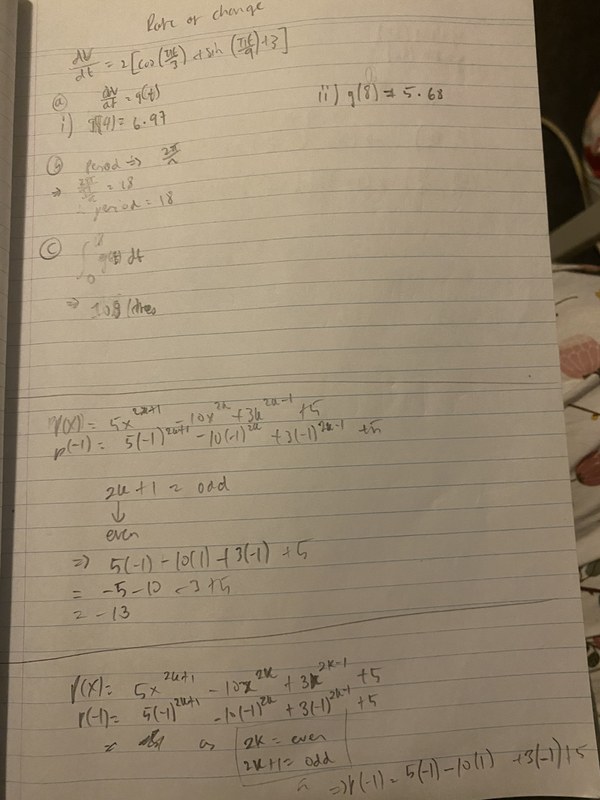 Rate of change
dV/dt = 2[cos(πt/3) + sin(πt/9) + 3]
(a) dV/dt = g(t)
i) g(4) = 6.97
ii) g(8) = 5.68
(b) period => 2π/n
=> = 18
∴ period = 18
(c) ∫ 0 g(t) dt
=> litres
p(x) = 5x^2k+1 - 10x^2k + 3x^2k-1 + 5
p(-1) = 5(-1)^2k+1 - 10(-1)^2k + 3(-1)^2k-1 + 5
2k+1 = odd
↓
even
=> 5(-1) - 10(1) + 3(-1) + 5
= -5 - 10 - 3 + 5
= -13
p(x) = 5x^2k+1 - 10x^2k + 3x^2k-1 + 5
p(-1) = 5(-1)^2k+1 - 10(-1)^2k + 3(-1)^2k-1 + 5
as 2k = even
2k+1 = odd
=> p(-1) = 5(-1) - 10(1) + 3(-1) + 5